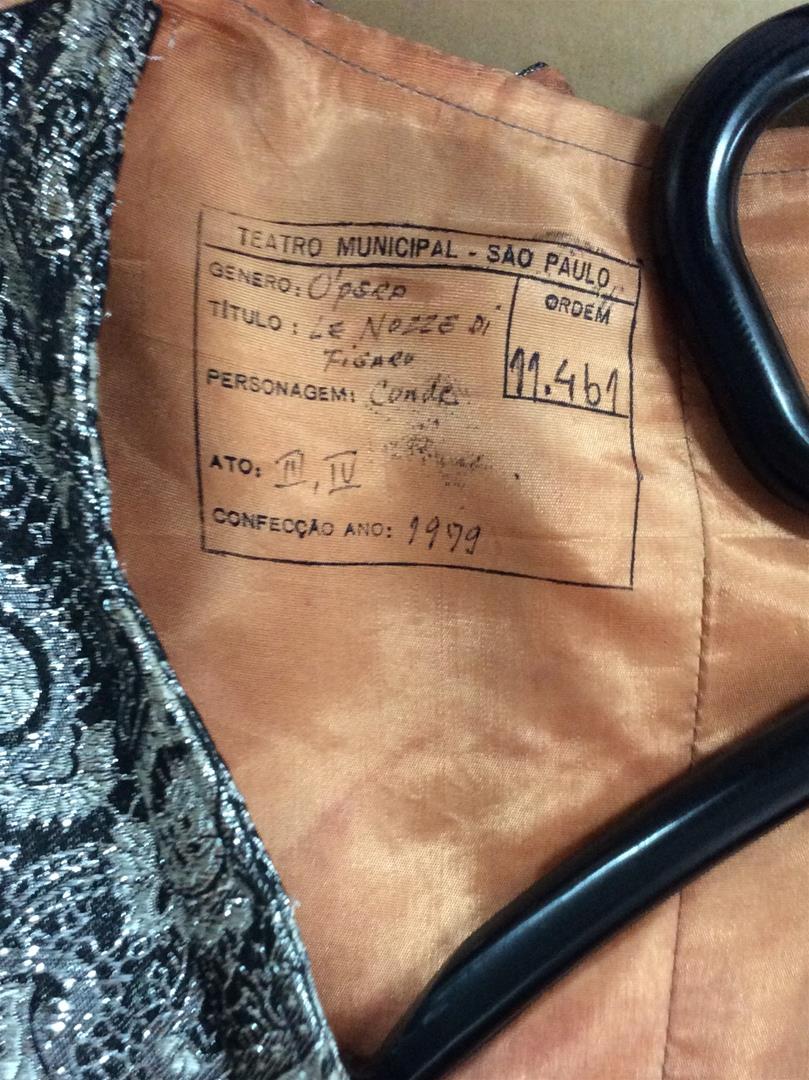 TEATRO MUNICIPAL - SÃO PAULO
GENERO: Ópera
ORDEM
TÍTULO: LE NOZZE Di
FiGARO
11.461
PERSONAGEM: Conde
ATO: III, IV
CONFECÇÃO ANO: 1979